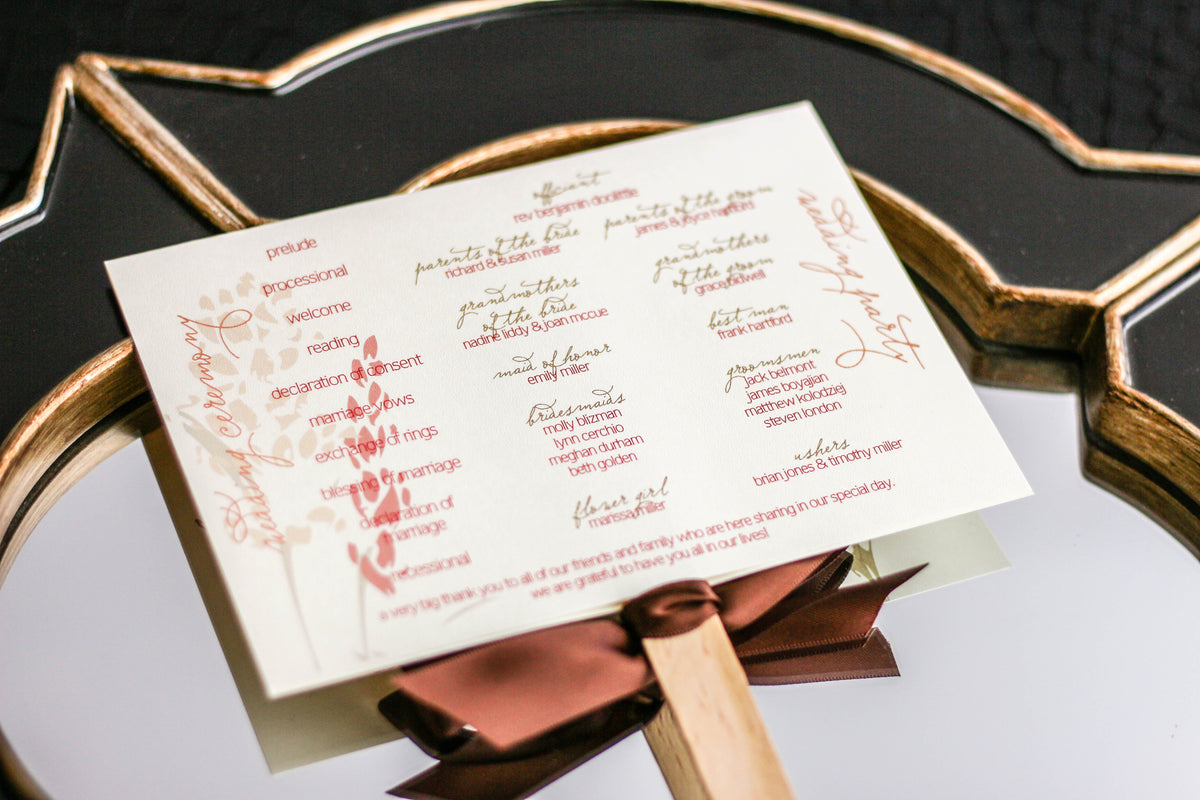 wedding ceremony
prelude
processional
welcome
reading
declaration of consent
marriage vows
exchange of rings
blessing of marriage
declaration of
marriage
recessional
officiant
rev benjamin doolittle
parents of the bride
richard & susan miller
grandmothers
of the bride
nadine liddy & joan mccue
maid of honor
emily miller
bridesmaids
molly blizman
lynn cerchio
meghan durham
beth golden
flower girl
marissa miller
parents of the groom
james & joyce hartford
grandmothers
of the groom
grace bidwell
best man
frank hartford
groomsmen
jack belmont
james boyajian
matthew kolodziej
steven london
ushers
brian jones & timothy miller
wedding party
a very big thank you to all of our friends and family who are here sharing in our special day.
we are grateful to have you all in our lives!